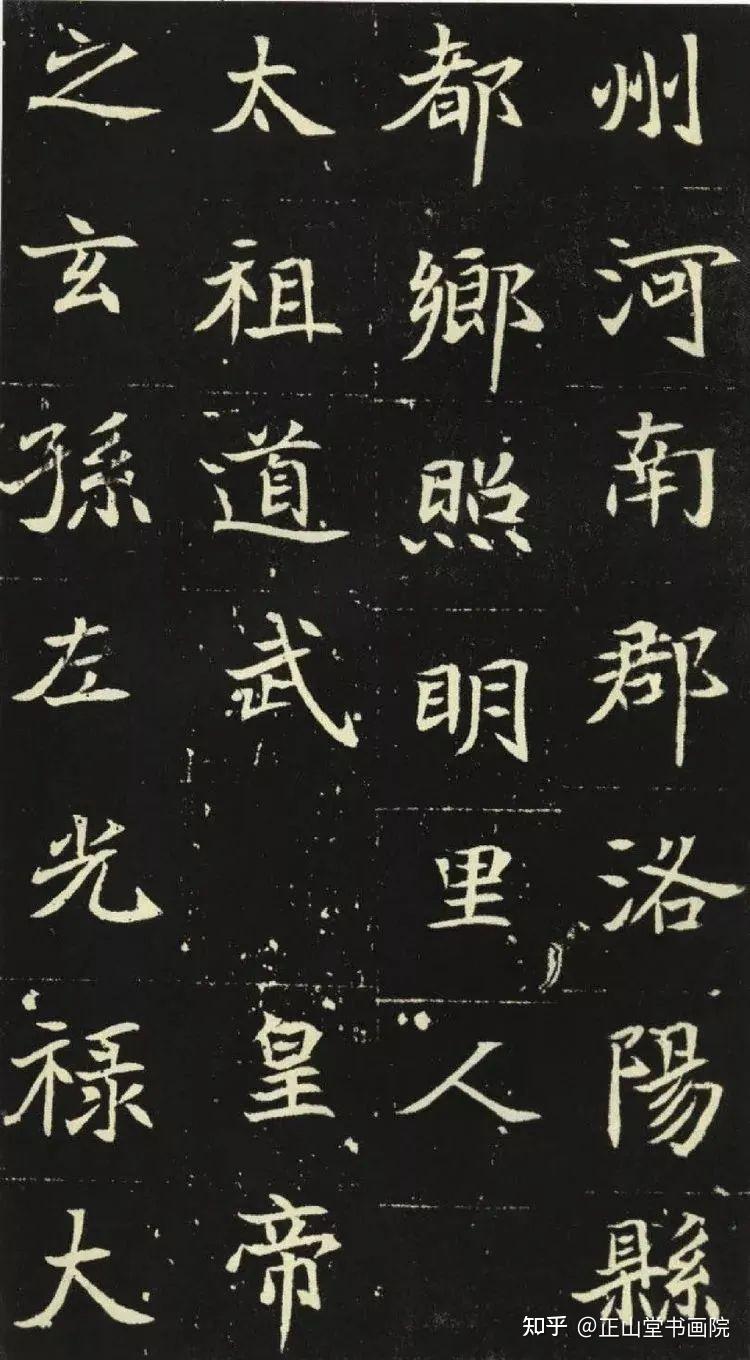 州河南郡洛陽縣
都鄉照明里人
太祖道武皇帝
之玄孫左光祿大
知乎 @正山堂书画院